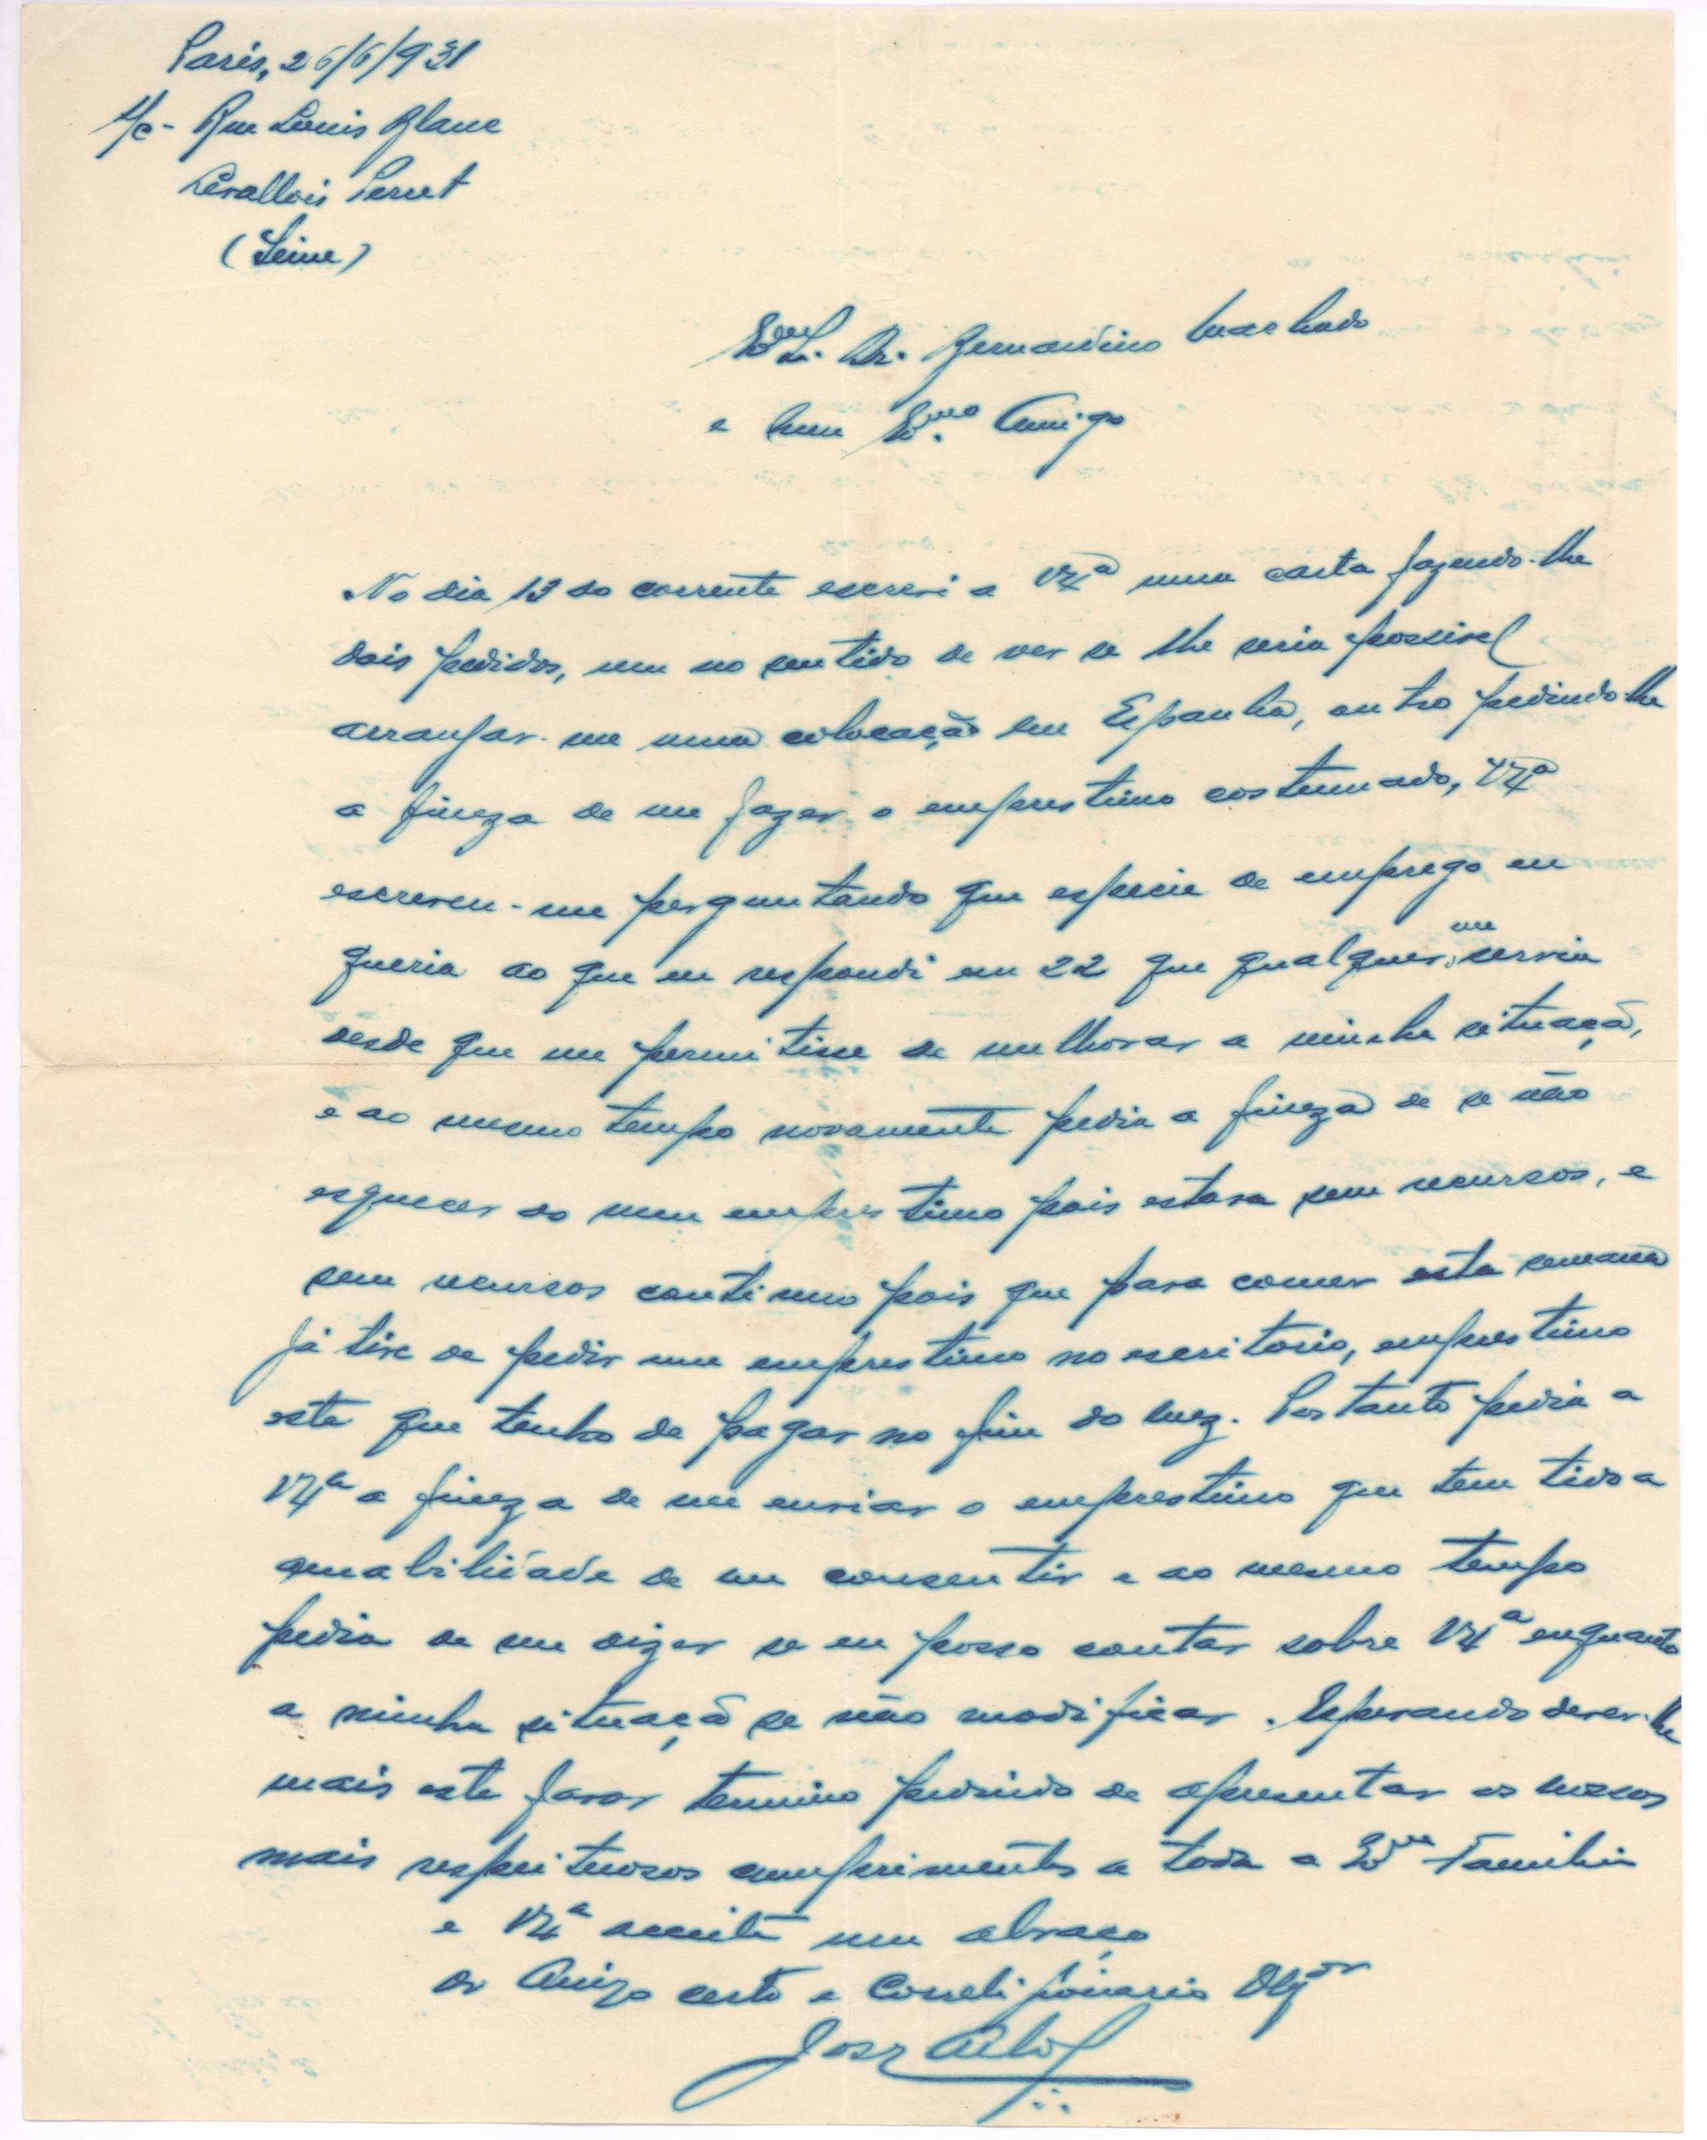 Paris, 26/6/931
S/c - Rue Louis Blanc
Levallois Perret
(Seine)
Exmo Sr. Dr. Bernardino Machado
e meu Exmo Amigo
No dia 13 do corrente escrevi a V. Exa uma carta fazendo-lhe
dois pedidos, um no sentido de ver se lhe seria possivel
arranjar-me uma colocação em Espanha, outro pedindo-lhe
a fineza de me fazer o emprestimo costumado, V. Exa
escreveu-me perguntando que especie de emprego eu
queria ao que eu respondi em 22 que qualquer me servia
desde que me permitisse de melhorar a minha situaçã,
e ao mesmo tempo novamente pedia a fineza de se não
esquecer do meu emprestimo pois estava sem recursos, e
sem recursos continuo pois que para comer esta semana
já tive de pedir um emprestimo no escritorio, emprestimo
este que tenho de pagar no fim do mez. Portanto pedia a
V. Exa a fineza de me enviar o emprestimo que tem tido a
amabilidade de me consentir e ao mesmo tempo
pedia de me dizer se eu posso contar sobre V. Exa enquanto
a minha situaçã se não modificar. Esperando dever-lhe
mais este favor termino pedindo de apresentar os nossos
mais respeitosos cumprimentos a toda a Exma Familia
e V. Exa aceite um abraço
do Amigo certo e Correligionario Obgdor
José